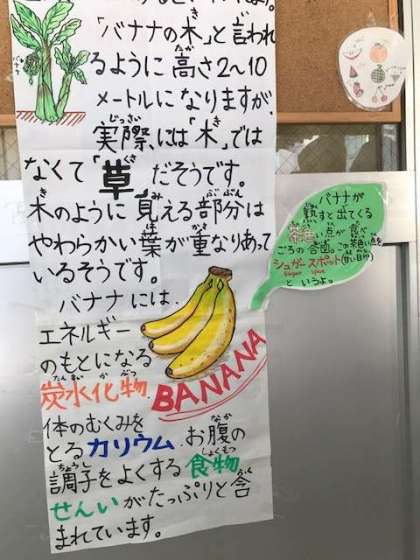 「バナナの木」と言われ
るように高さ2〜10
メートルになりますが、
実際には「木」では
なくて「草」だそうです。
木のように見える部分は
やわらかい葉が重なりあって
いるそうです。
バナナには、
エネルギー
のもとになる
炭水化物、
体のむくみを
とるカリウム、お腹の
調子をよくする食物
せんいがたっぷりと含
まれています。
BANANA
バナナが
熟すと出てくる
茶色い点が食べ
ごろの合図。この茶色い点を
シュガースポット(甘い目印)
Sugar spot
というよ。